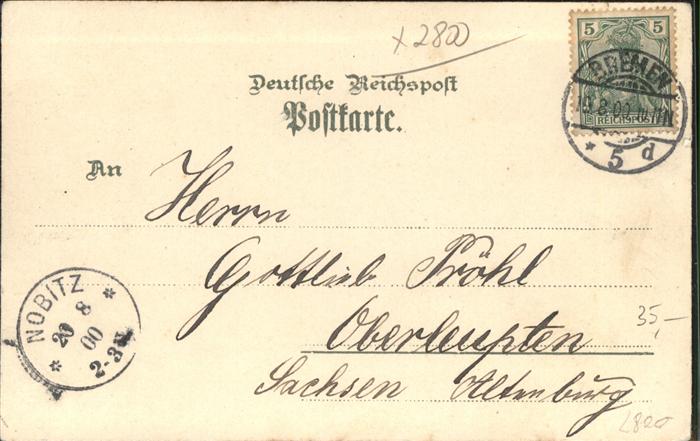 x 2800
5 5
REICHSPOST
BREMEN
19.8.00
* 5 d
Deutsche Reichspost
Postkarte.
An
Herrn
Gottlieb Pröhl
Oberleupten
Sachsen Altenburg
NOBITZ
20 8
00
2-3N
* *
35,-
2800